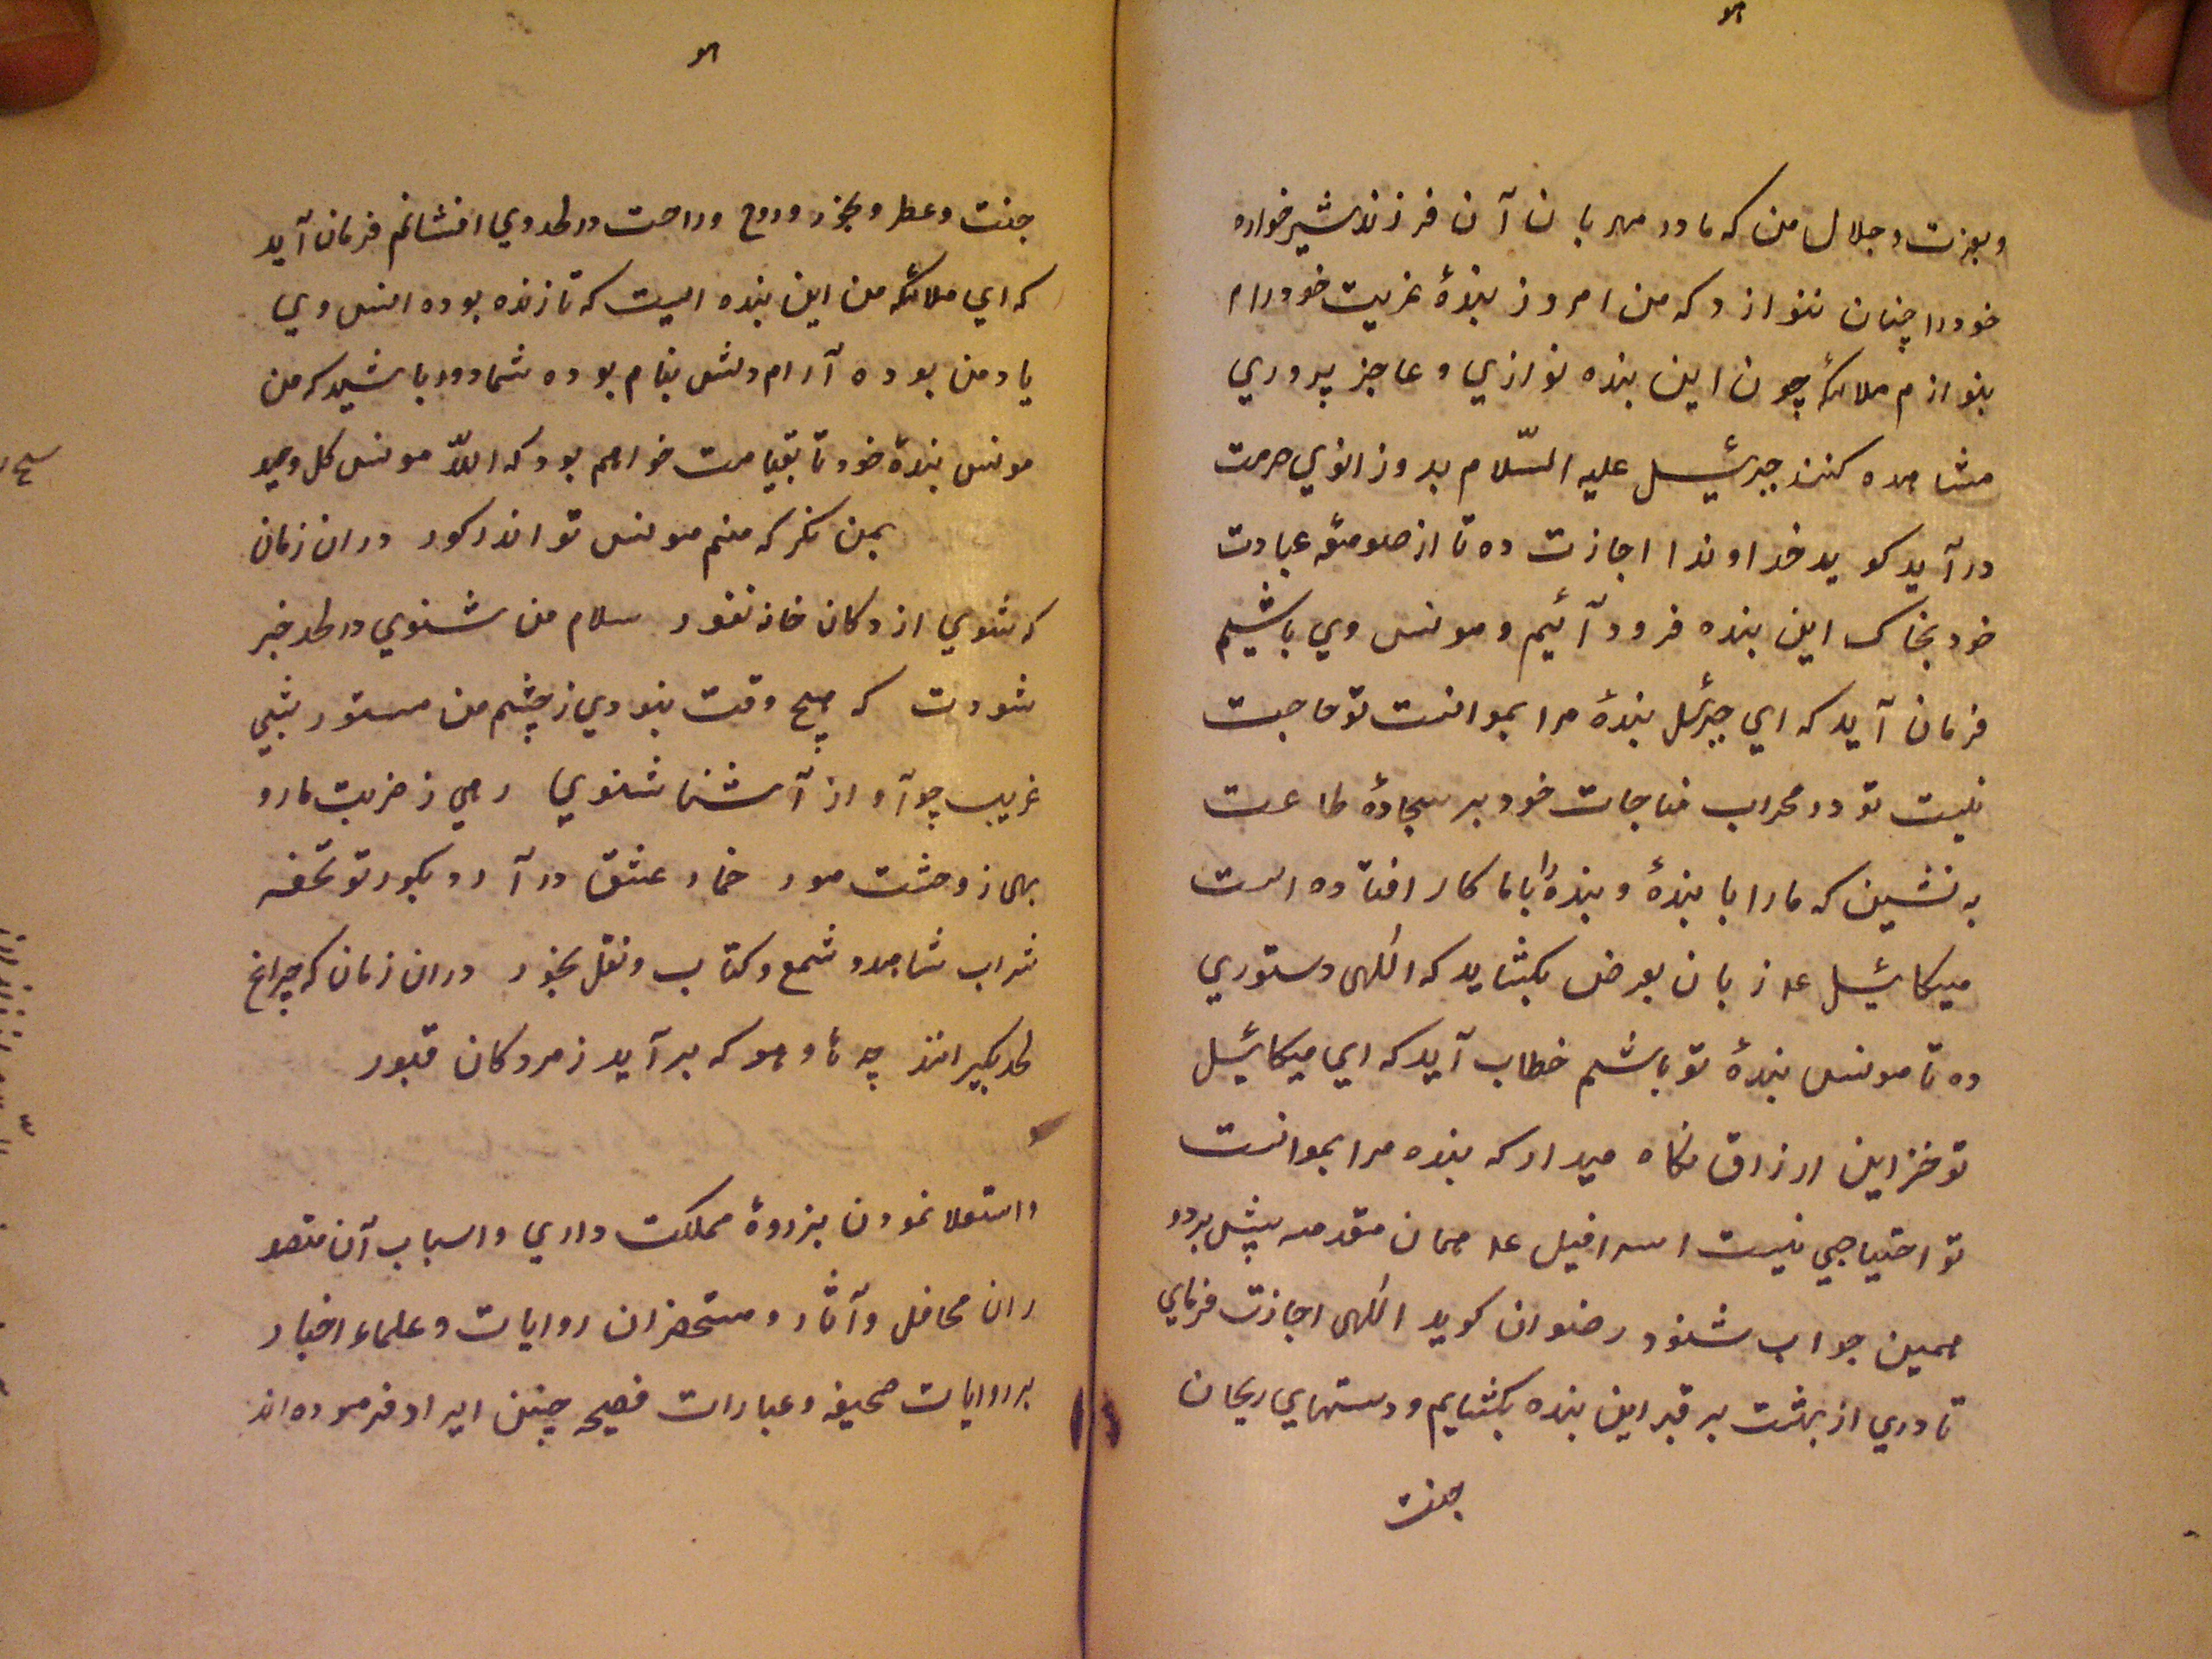 وبعزت وجلال من که مادر مهربان آن فرزند شیرخواره
خودرا چنان ننوازد که من امروز بندهٔ غریب خودرام
بنوازم ملائکهٔ چون این بنده نوازي و عاجز پروري
مشاهده کنند جبرئیل علیه السّلام بدو زانوي حرمت
در آید کوید خداوندا اجازت ده تا از صومعهٔ عبادت
خود بخاک این بنده فرود آئیم و مونس وي باشیم
فرمان آید که اي جبرئیل بندهٔ مرا بموانست تو حاجت
نیست تو در محراب مناجات خود بر سجادهٔ طاعت
به نشین که مارا با بندهٔ و بندهٔ را با ما کار افتاده است
میکائیل عه زبان بعرض بکشاید که الٰلهی دستوري
ده تا مونس بندهٔ تو باشم خطاب آید که اي میکائیل
تو خزاین ارزاق نکاه میدار که بنده مرا بموانست
تو احتیاجي نیست اسرافیل عه همان مقدمه پیش برد و
همین جواب شنود رضوان کوید الٰلهی اجازت فرماي
تا دري از بهشت بر قبر این بنده بکشایم و دستهاي ریحان
جنت
جنت و عطر و بخور و روح و راحت در لحد وي افشانم فرمان آید
که اي ملائکه من این بنده ایست که تا زنده بوده انس وي
یاد من بوده آرام دلش بنام بوده شما دور باشید که من
مونس بندهٔ خود تا بقیامت خواهم بود که اللّٰه مونس کل وحید
بمن نکر که منم مونس تو اندر کور در ان زمان
که شوي از دکان خانه نفور سلام من شنوي در لحد خبر
شودت که هیچ وقت نبودي ز چشم من مستور شبي
غریب چو آواز آشنا شنوي رهي ز ضربت مار و
بهی ز وحشت مور خمار عشق در آرد بکور تو تحفه
شراب شاهد و شمع و کتاب و نقل بخور در ان زمان که چراغ
لحد بکیرانند چه ها و هو که بر آید ز مردکان قبور
واستعلا نمودن بزروهٔ مملکت داري و اسباب آن متصو
ران محافل و آثار و مستحضران روایات و علماء اخبار
بر روایات صحیفه و عبارات فصیحه چنین ایراد فرموده اند